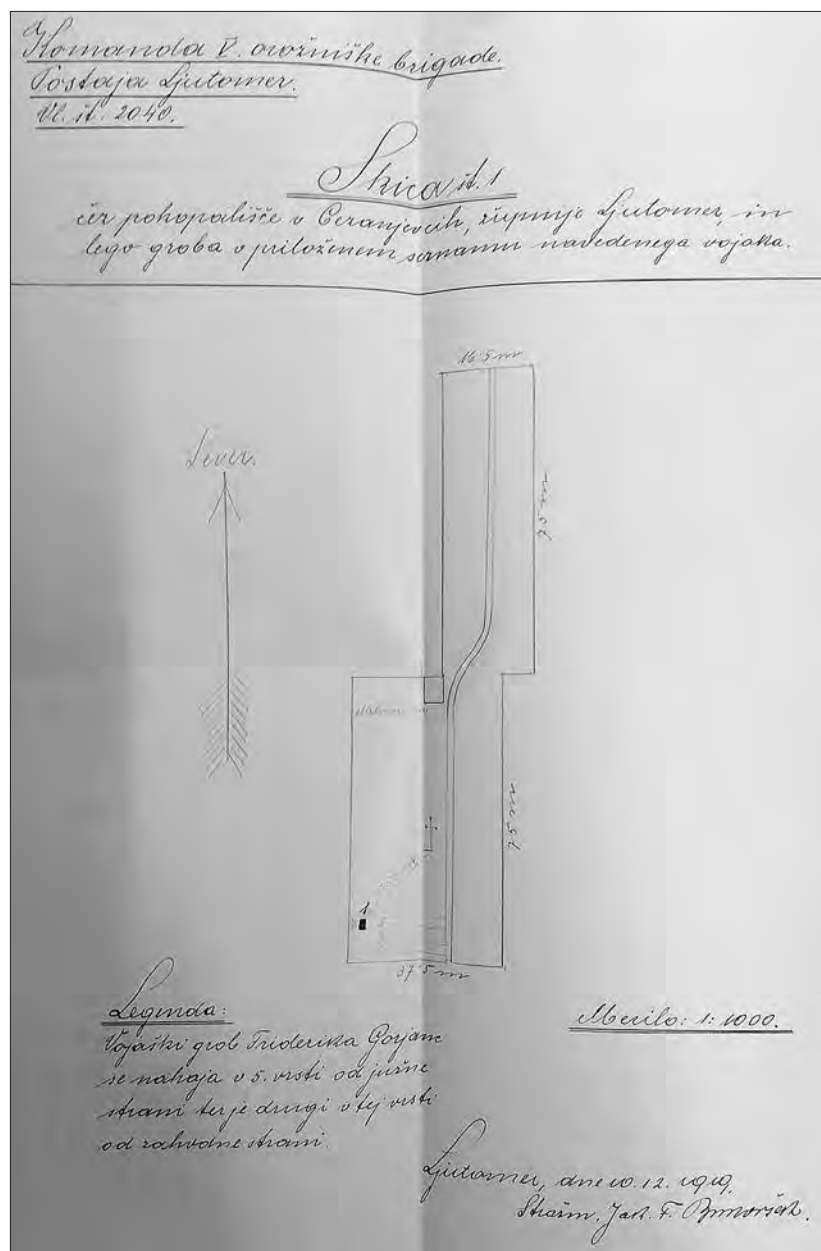 Komanda V. orožniške brigade.
Postaja Ljutomer.
Vl. št. 2040.
Skica št. 1
čez pokopališče v Ceranjevcih, župnije Ljutomer, in
lego groba v priloženem seznamu navedenega vojaka.
16·5 m
Sever.
75 m
75 m
1
37·5 m
Legenda:
Vojaški grob Friderika Gorjanc
se nahaja v 5. vrsti od južne
strani ter je drugi v tej vrsti
od zahodne strani.
Merilo: 1:1000.
Ljutomer, dne 10. 12. 1919.
Stražm. F.